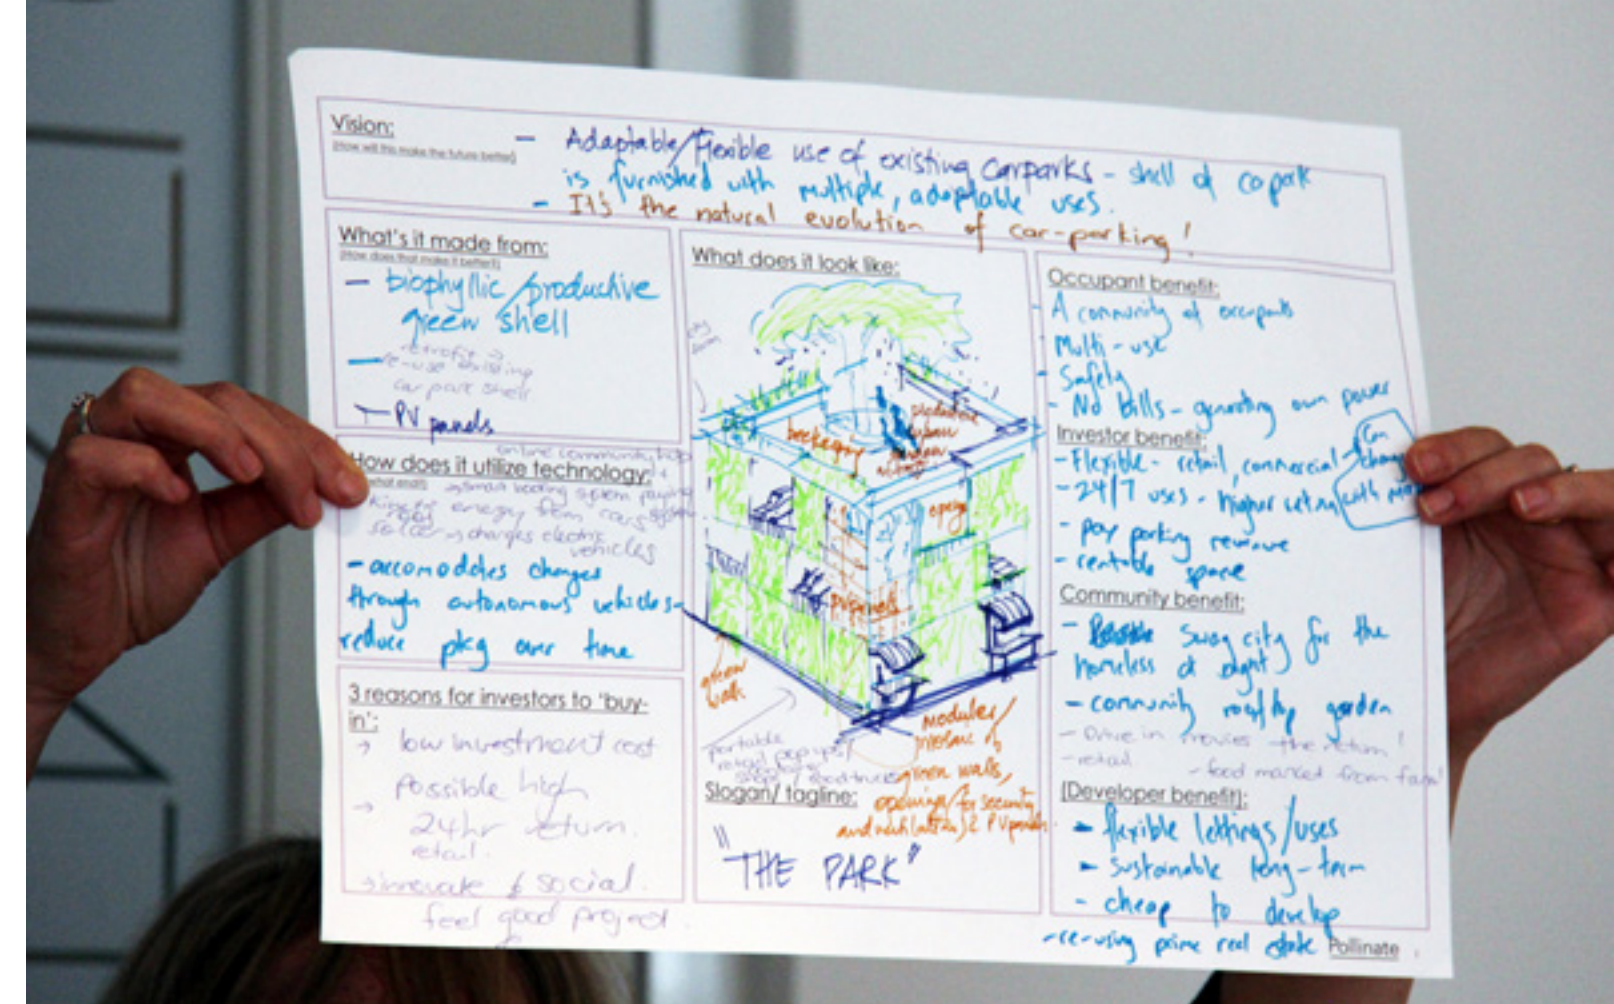 Vision:
(How will this make the future better)
- Adaptable/flexible use of existing carparks - shell of
is furnished with multiple, adaptable uses.
- It's the natural evolution of car-parking!
What's it made from:
(How does that make it better?)
- biophyllic/productive
green shell
- retrofit
re-use existing
car park shell
- PV panels
How does it utilize technology:
online community
smart booking system paying system
energy from cars
solar → charges electric
vehicles
- accomodates changes
through autonomous vehicles -
reduce pkg over time
3 reasons for investors to 'buy-
in':
→ low investment cost
→ Possible high
24hr return.
retail.
→ innovate & social.
feel good project.
What does it look like:
beekeeping
productive
urban
opening
PV panels
green
walk
portable
retail pop ups/
food trucks
modular/
mosaic of
green walls,
openings (for security
and ventilation) & PV panels
Slogan/ tagline:
"THE PARK"
Occupant benefit:
- A community of occupants
Multi-use
- Safety
- No bills - generating own power
Investor benefit:
- Flexible - retail, commercial
Can
change
with
- 24/7 uses - higher return
- pay parking revenue
- rentable space
Community benefit:
- Swag city for the
homeless at night
- community rooftop garden
- Drive in movies - the return!
- retail.
- food market from farm!
[Developer benefit]:
- flexible lettings/uses
- sustainable long-term
- cheap to develop
- re-using prime real estate
Pollinate